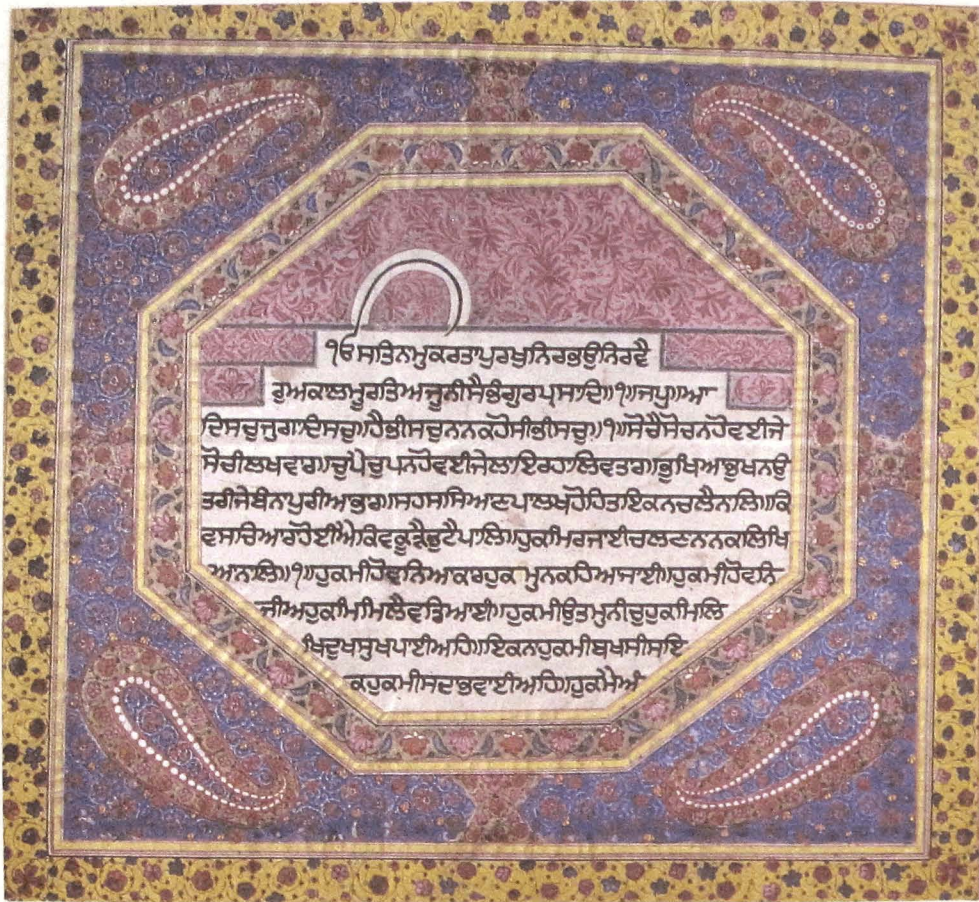 ੴਸਤਿਨਾਮੁਕਰਤਾਪੁਰਖੁਨਿਰਭਉਨਿਰਵੈ
ਰੁਅਕਾਲਮੂਰਤਿਅਜੂਨੀਸੈਭੰਗੁਰਪ੍ਰਸਾਦਿ॥੧॥ਜਪੁ॥ਆ
ਦਿਸਚੁਜੁਗਾਦਿਸਚੁ॥ਹੈਭੀਸਚੁਨਾਨਕਹੋਸੀਭੀਸਚੁ॥੧॥ਸੋਚੈਸੋਚਨਹੋਵਈਜੇ
ਸੋਚੀਲਖਵਾਰ॥ਚੁਪੈਚੁਪਨਹੋਵਈਜੇਲਾਇਰਹਾਲਿਵਤਾਰ॥ਭੁਖਿਆਭੁਖਨਉ
ਤਰੀਜੇਬੰਨਾਪੁਰੀਆਭਾਰ॥ਸਹਸਸਿਆਣਪਾਲਖਹੋਹਿਤਾਇਕਨਚਲੈਨਾਲਿ॥ਕਿ
ਵਸਚਿਆਰਾਹੋਈਐਕਿਵਕੂੜੈਤੁਟੈਪਾਲਿ॥ਹੁਕਮਿਰਜਾਈਚਲਣਾਨਾਨਕਲਿਖਿ
ਆਨਾਲਿ॥੧॥ਹੁਕਮੀਹੋਵਨਿਆਕਾਰਹੁਕਮੁਨਕਹਿਆਜਾਈ॥ਹੁਕਮੀਹੋਵਨਿ
ਜੀਅਹੁਕਮਿਮਿਲੈਵਡਿਆਈ॥ਹੁਕਮੀਉਤਮੁਨੀਚੁਹੁਕਮਿਲਿ
ਖਿਦੁਖਸੁਖਪਾਈਅਹਿ॥ਇਕਨਾਹੁਕਮੀਬਖਸੀਸਇ
ਕਹੁਕਮੀਸਦਾਭਵਾਈਅਹਿ॥ਹੁਕਮੈਅੰ